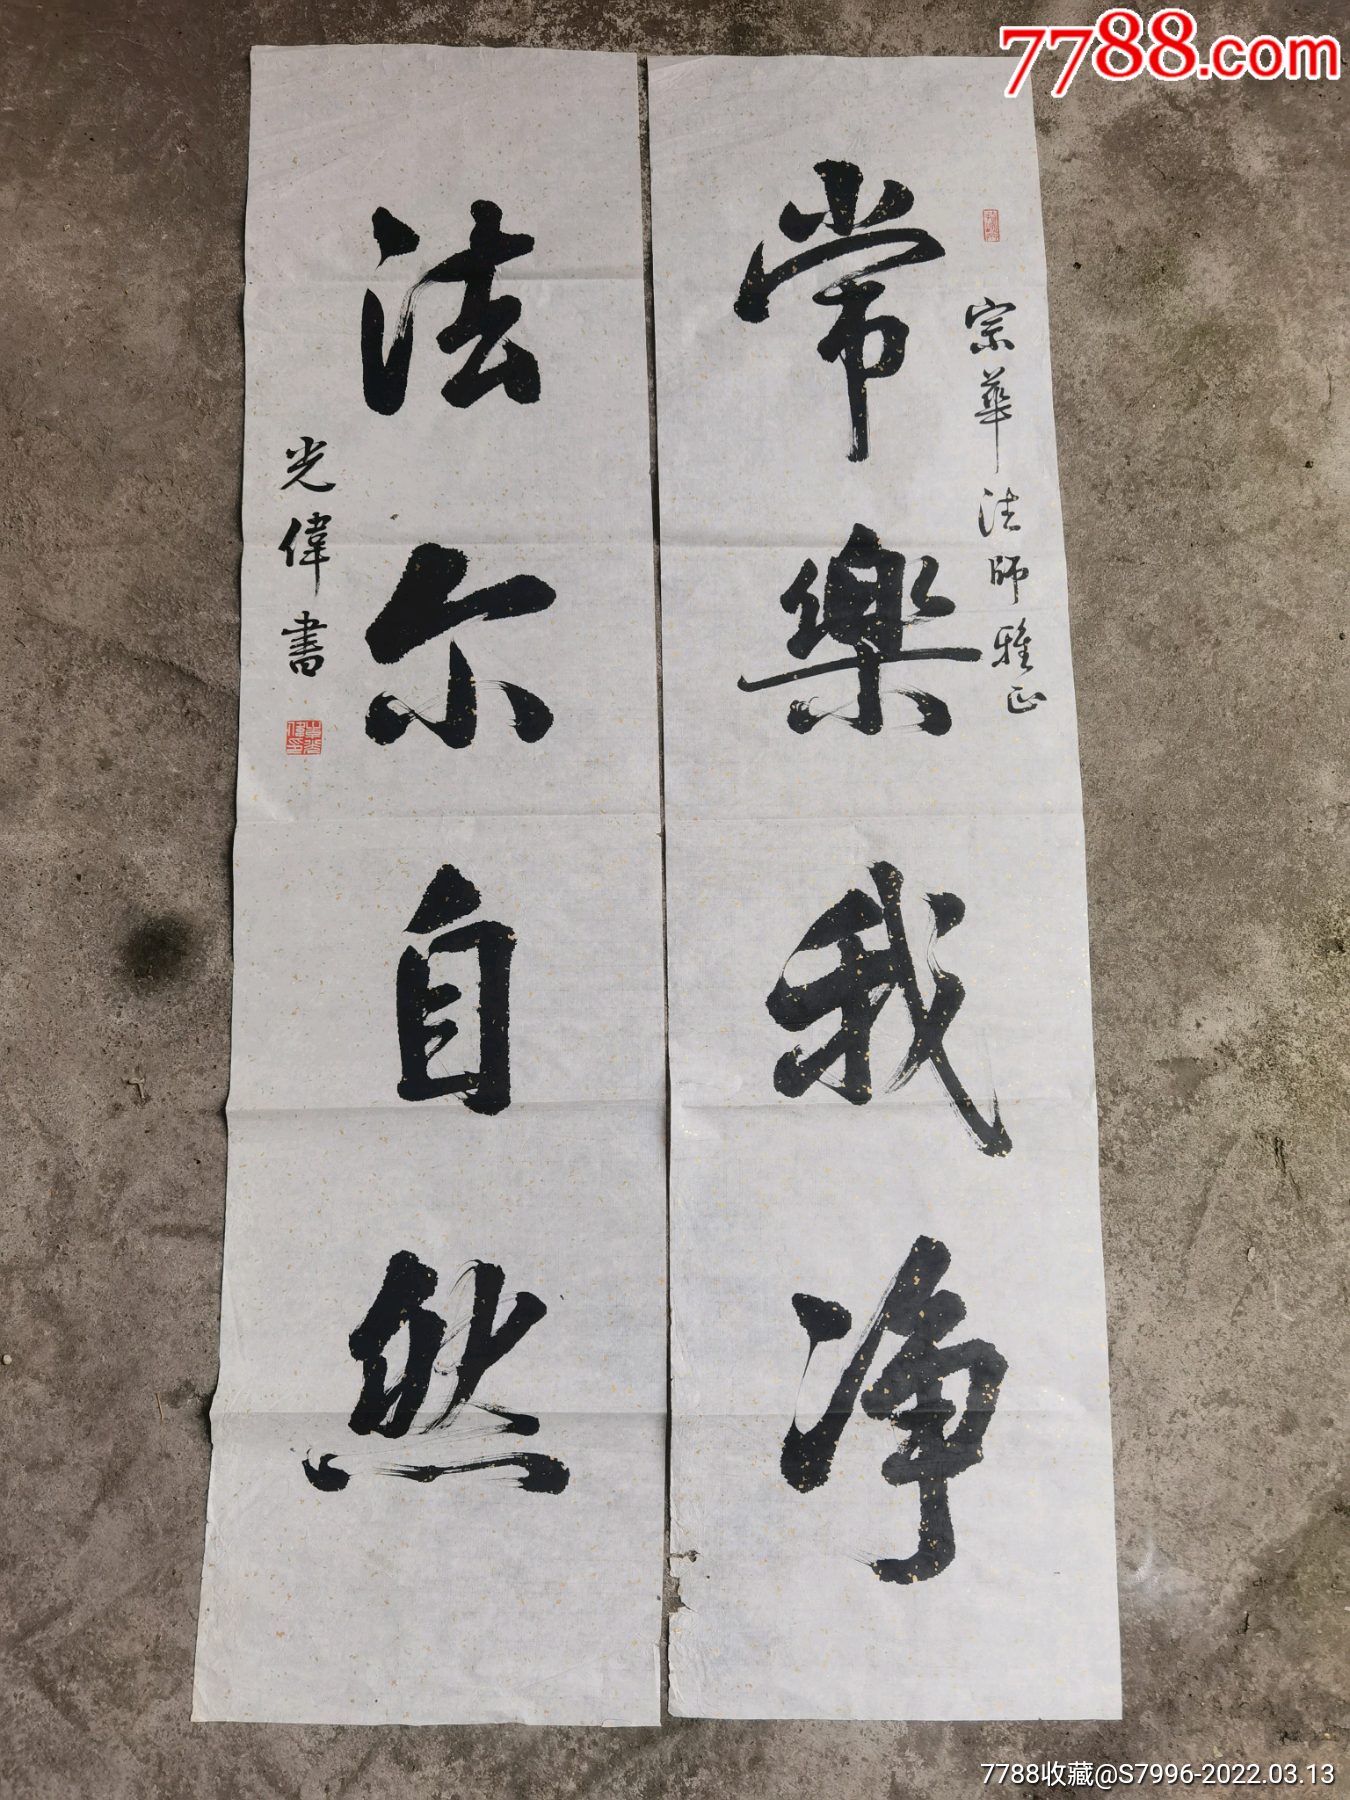 7788.com
宗華法師雅正
常樂我净
法尔自然
光偉書
7788收藏@S7996-2022.03.13